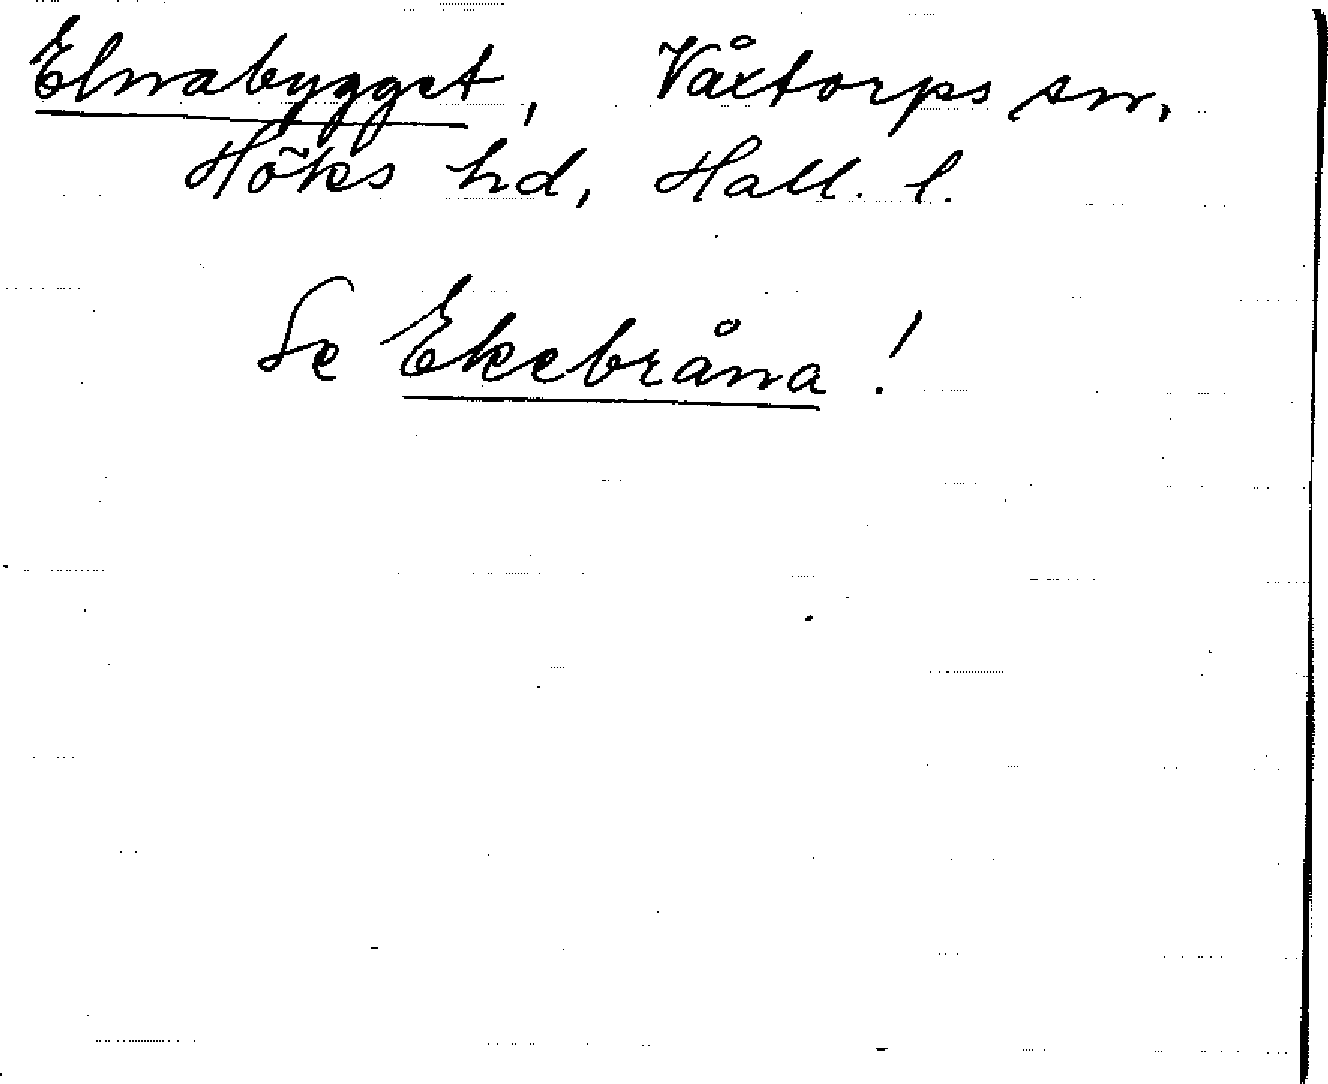 Elnabygget, Våxtorps sn,
Höks hd, Hall. l.
Se Ekebråna!